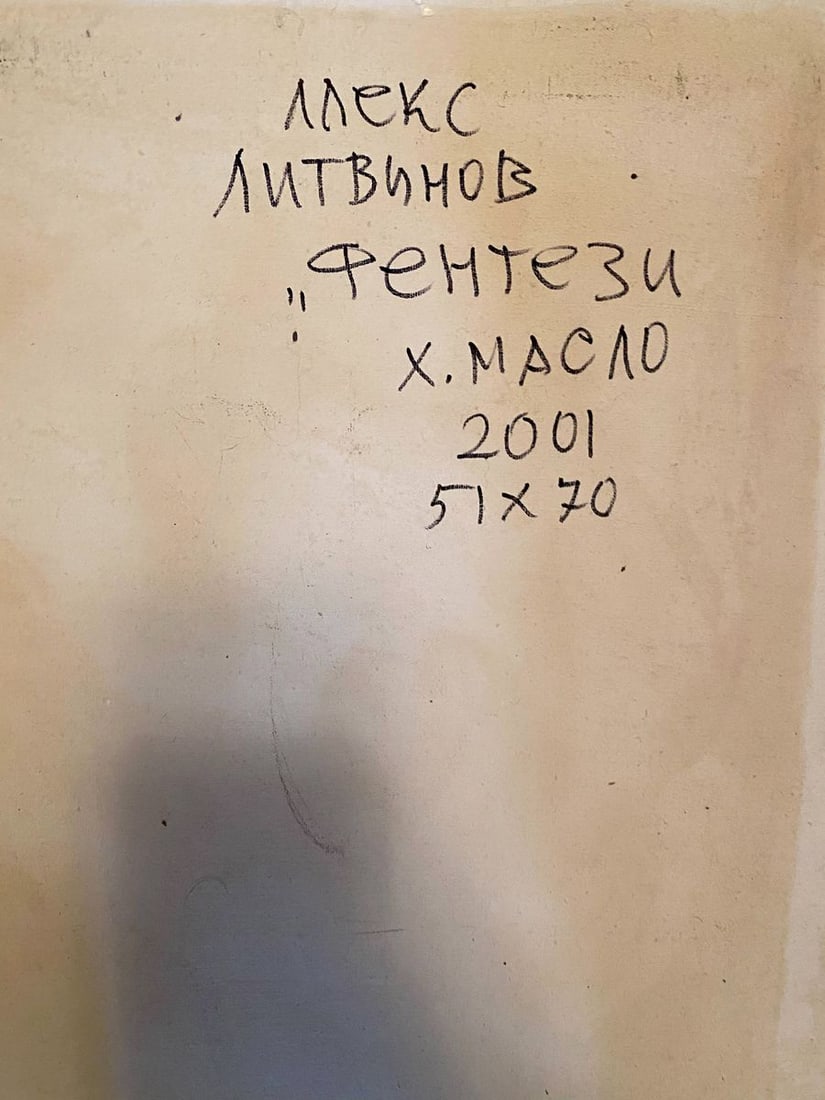 Алекс
Литвинов
„Фентези
х. масло
2001
51х70